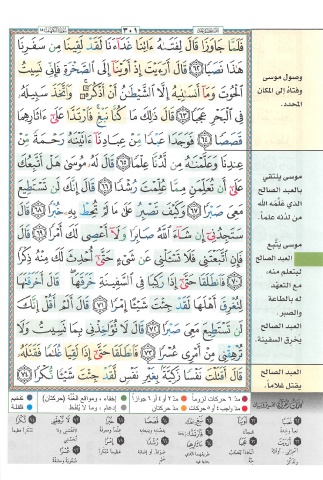 ٣٠١
فَلَمَّا جَاوَزَا قَالَ لِفَتَىٰهُ ءَاتِنَا غَدَآءَنَا لَقَدْ لَقِينَا مِن سَفَرِنَا
هَٰذَا نَصَبًا ٦٢ قَالَ أَرَءَيْتَ إِذْ أَوَيْنَآ إِلَى ٱلصَّخْرَةِ فَإِنِّى نَسِيتُ
ٱلْحُوتَ وَمَآ أَنسَىٰنِيهُ إِلَّا ٱلشَّيْطَٰنُ أَنْ أَذْكُرَهُۥ وَٱتَّخَذَ سَبِيلَهُۥ
فِى ٱلْبَحْرِ عَجَبًا ٦٣ قَالَ ذَٰلِكَ مَا كُنَّا نَبْغِ فَٱرْتَدَّا عَلَىٰٓ ءَاثَارِهِمَا
قَصَصًا ٦٤ فَوَجَدَا عَبْدًا مِّنْ عِبَادِنَآ ءَاتَيْنَٰهُ رَحْمَةً مِّنْ
عِندِنَا وَعَلَّمْنَٰهُ مِن لَّدُنَّا عِلْمًا ٦٥ قَالَ لَهُۥ مُوسَىٰ هَلْ أَتَّبِعُكَ
عَلَىٰٓ أَن تُعَلِّمَنِ مِمَّا عُلِّمْتَ رُشْدًا ٦٦ قَالَ إِنَّكَ لَن تَسْتَطِيعَ
مَعِىَ صَبْرًا ٦٧ وَكَيْفَ تَصْبِرُ عَلَىٰ مَا لَمْ تُحِطْ بِهِۦ خُبْرًا ٦٨ قَالَ
سَتَجِدُنِىٓ إِن شَآءَ ٱللَّهُ صَابِرًا وَلَآ أَعْصِى لَكَ أَمْرًا ٦٩ قَالَ
فَإِنِ ٱتَّبَعْتَنِى فَلَا تَسْـَٔلْنِى عَن شَىْءٍ حَتَّىٰٓ أُحْدِثَ لَكَ مِنْهُ ذِكْرًا
٧٠ فَٱنطَلَقَا حَتَّىٰٓ إِذَا رَكِبَا فِى ٱلسَّفِينَةِ خَرَقَهَا قَالَ أَخَرَقْتَهَا
لِتُغْرِقَ أَهْلَهَا لَقَدْ جِئْتَ شَيْـًٔا إِمْرًا ٧١ قَالَ أَلَمْ أَقُلْ إِنَّكَ
لَن تَسْتَطِيعَ مَعِىَ صَبْرًا ٧٢ قَالَ لَا تُؤَاخِذْنِى بِمَا نَسِيتُ وَلَا
تُرْهِقْنِى مِنْ أَمْرِى عُسْرًا ٧٣ فَٱنطَلَقَا حَتَّىٰٓ إِذَا لَقِيَا غُلَٰمًا فَقَتَلَهُۥ
قَالَ أَقَتَلْتَ نَفْسًا زَكِيَّةًۢ بِغَيْرِ نَفْسٍ لَّقَدْ جِئْتَ شَيْـًٔا نُّكْرًا ٧٤
وصول موسى
وفتاه إلى المكان
المحدد.
موسى يلتقي
بالعبد الصالح
الذي علّمه الله
من لدنه علماً.
موسى يتبع
العبد الصالح
ليتعلم منه،
مع التعهد
له بالطاعة
والصبر.
العبد الصالح
يخرق السفينة.
العبد الصالح
يقتل غلاماً.